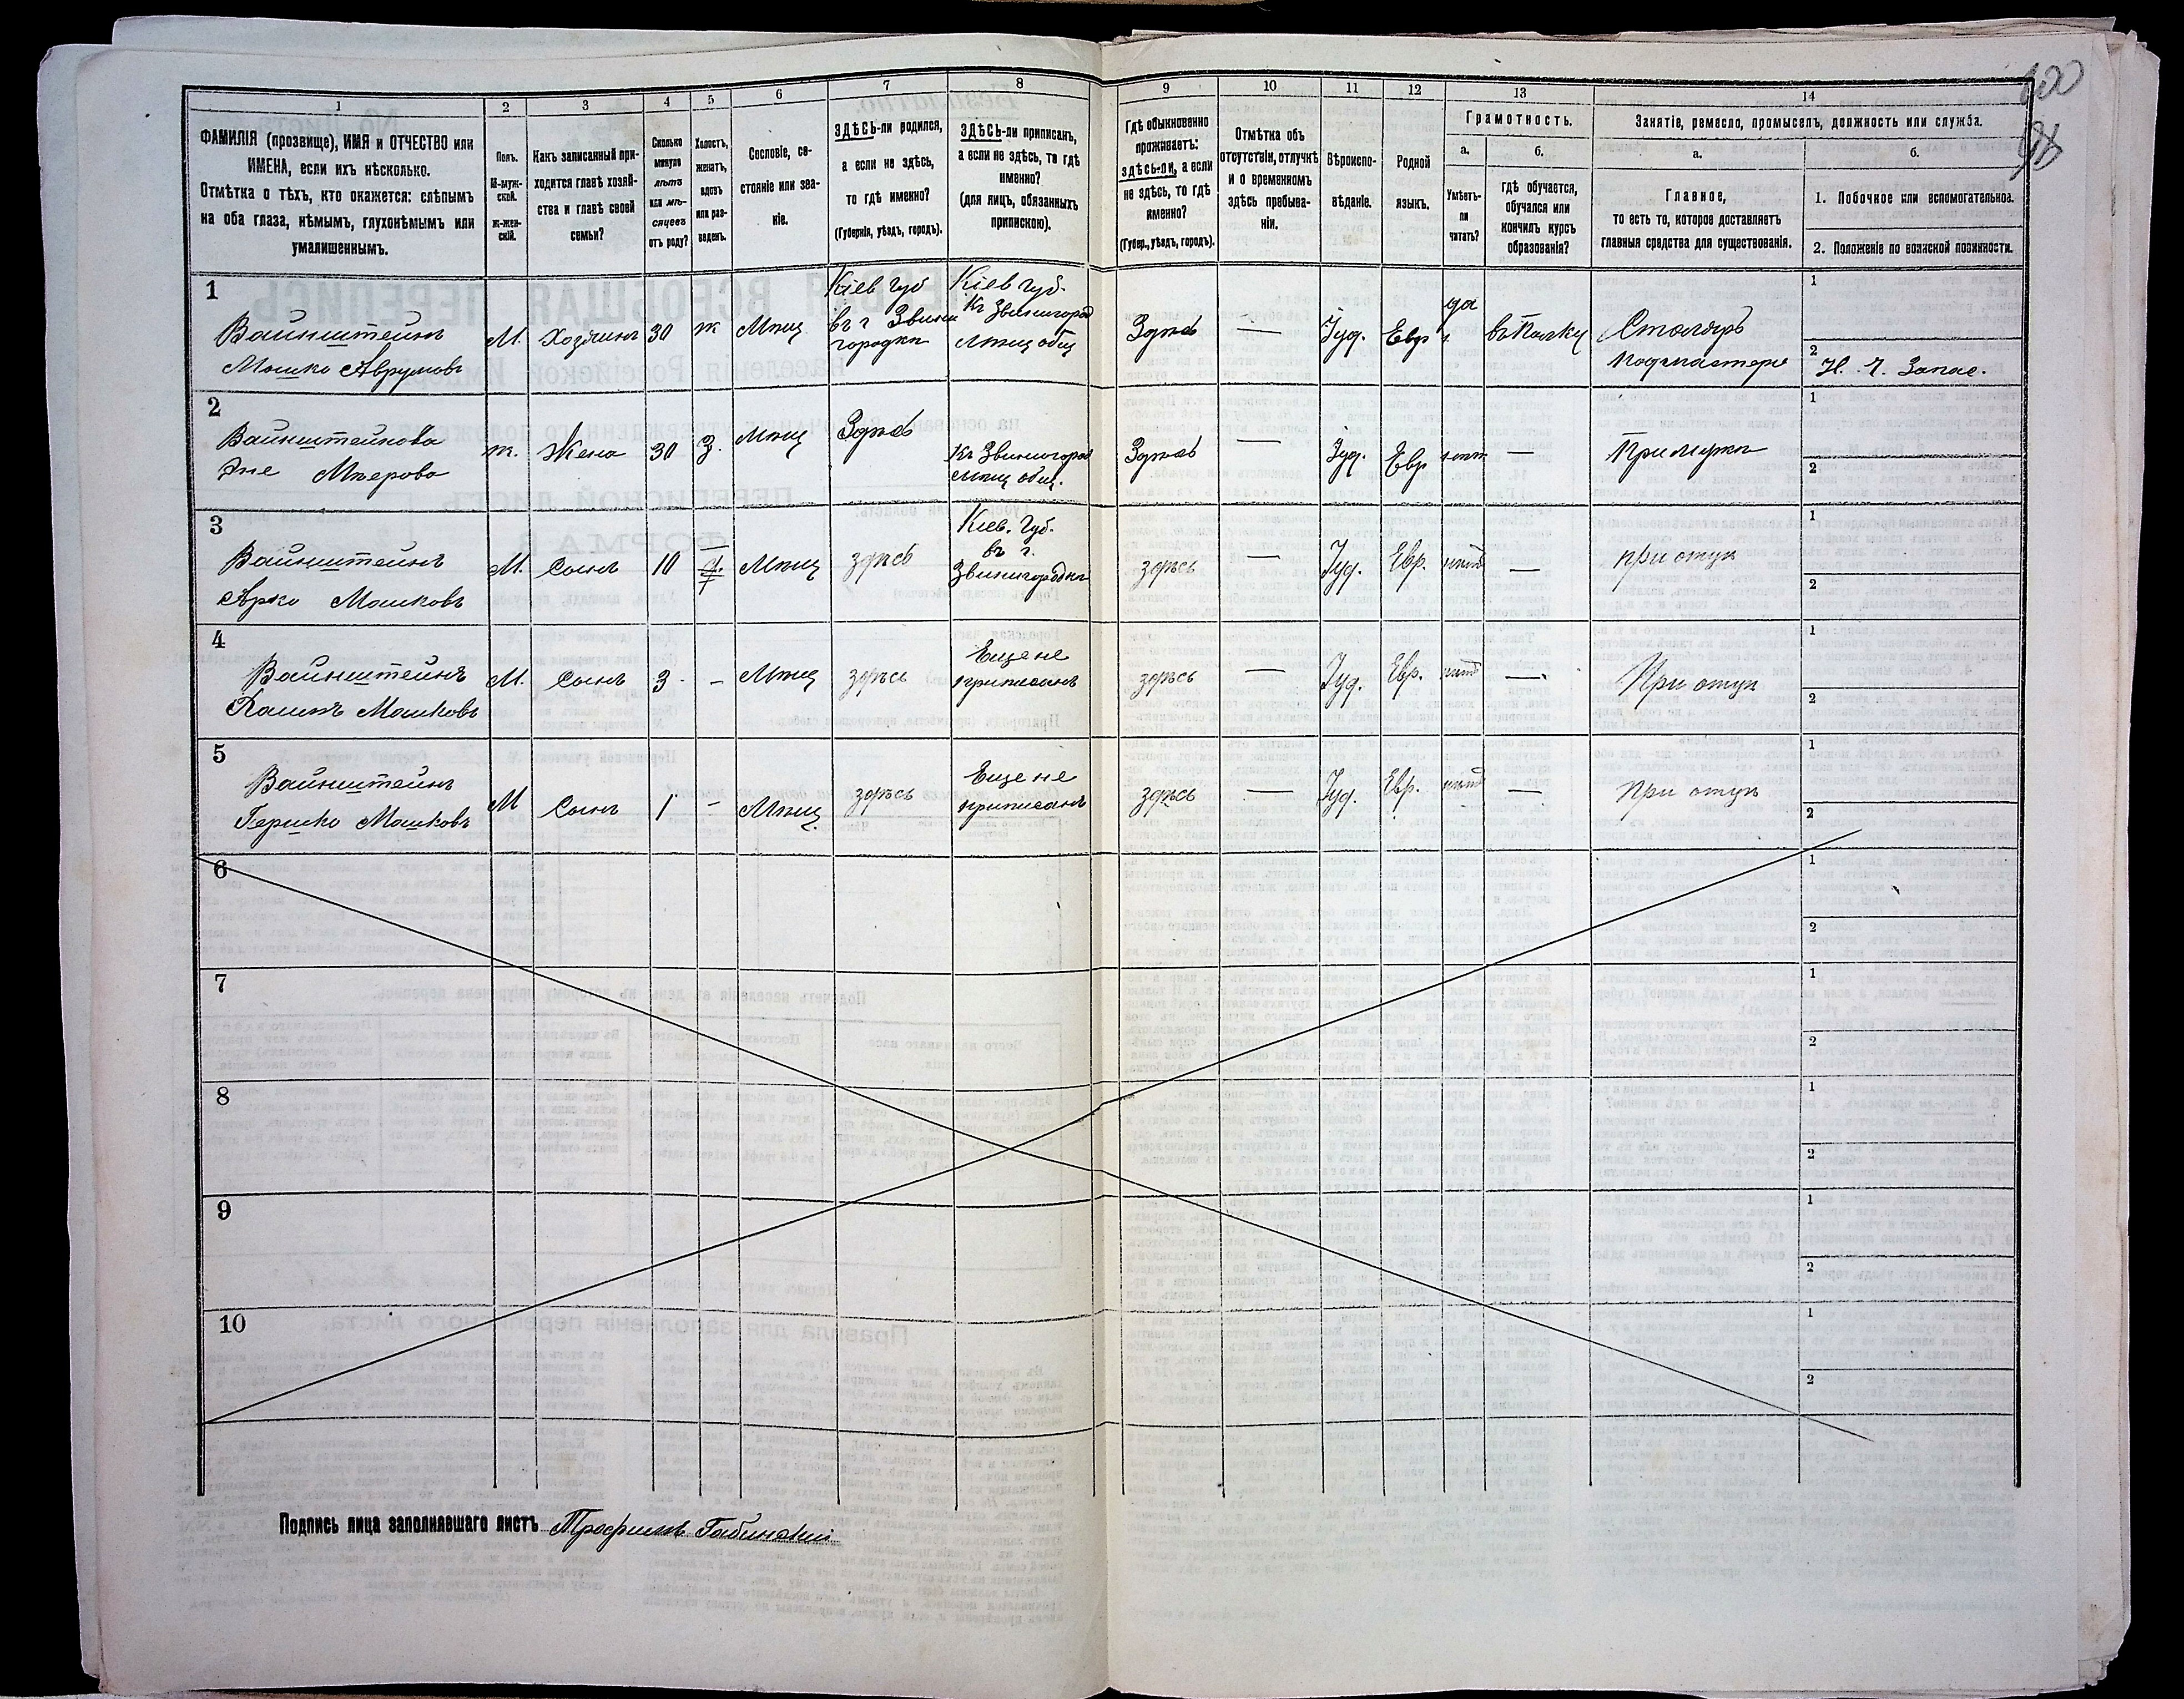 1
2
3
4
5
6
7
8
9
10
11
12
13
14
ФАМИЛІЯ (прозвище), ИМЯ и ОТЧЕСТВО или
ИМЕНА, если ихъ нѣсколько.
Отмѣтка о тѣхъ, кто окажется: слѣпымъ
на оба глаза, нѣмымъ, глухонѣмымъ или
умалишеннымъ.
Полъ.
М-муж-
ской.
Ж-жен-
скій.
Какъ записанный при-
ходится главѣ хозяй-
ства и главѣ своей
семьи?
Сколько
минуло
лѣтъ
или мѣ-
сяцевъ
отъ роду?
Холостъ,
женатъ,
вдовъ
или раз-
веденъ.
Сословіе, со-
стояніе или зва-
ніе.
ЗДѢСЬ-ли родился,
а если не здѣсь,
то гдѣ именно?
(Губернія, уѣздъ, городъ).
ЗДѢСЬ-ли приписанъ,
а если не здѣсь, то гдѣ
именно?
(для лицъ, обязанныхъ
припискою).
Гдѣ обыкновенно
проживаетъ:
здѣсь-ли, а если
не здѣсь, то гдѣ
именно?
(Губер., уѣздъ, городъ).
Отмѣтка объ
отсутствіи, отлучкѣ
и о временномъ
здѣсь пребыва-
ніи.
Вѣроиспо-
вѣданіе.
Родной
языкъ.
Грамотность.
а.
Умѣетъ-
ли
читать?
б.
гдѣ обучается,
обучался или
кончилъ курсъ
образованія?
Занятіе, ремесло, промыселъ, должность или служба.
а.
Главное,
то есть то, которое доставляетъ
главныя средства для существованія.
б.
1. Побочное или вспомогательное.
2. Положеніе по воинской повинности.
100
1
Вайнштейнъ
Мошко Аврумовъ
М.
Хозяинъ
30
ж
Мѣщ
Кіев Губ
въ г Звени
городкѣ
Кіев Губ.
Къ Звенигород
Мѣщ общ
Здѣсь
—
Іуд.
Евр
да
Столяръ
подмастерье
1
2
Запас.
2
Вайнштейнова
Мѣерова
ж.
Жена
30
З.
Мѣщ
Здѣсь
Къ Звенигород
Мѣщ общ.
Здѣсь
—
Іуд.
Евр
нѣтъ
—
При мужѣ
1
2
3
Вайнштейнъ
Мошковъ
М.
Сынъ
10
Мѣщ
здѣсь
Кіев. Губ.
въ г.
Звенигородкѣ
здѣсь
—
Іуд.
Евр.
нѣтъ
—
при отцѣ
1
2
4
Вайнштейнъ
Мошковъ
М.
Сынъ
3
-
Мѣщ
здѣсь
Еще не
приписанъ
здѣсь
—
Іуд.
Евр.
нѣтъ
—
При отцѣ
1
2
5
Вайнштейнъ
Гершко Мошковъ
М
Сынъ
1
-
Мѣщ.
здѣсь
Еще не
приписанъ
здѣсь
—
Іуд.
Евр.
нѣтъ
—
При отцѣ
1
2
6
1
2
7
1
2
8
1
2
9
1
2
10
1
2
Подпись лица заполнявшаго листъ Трофимъ Габинскій